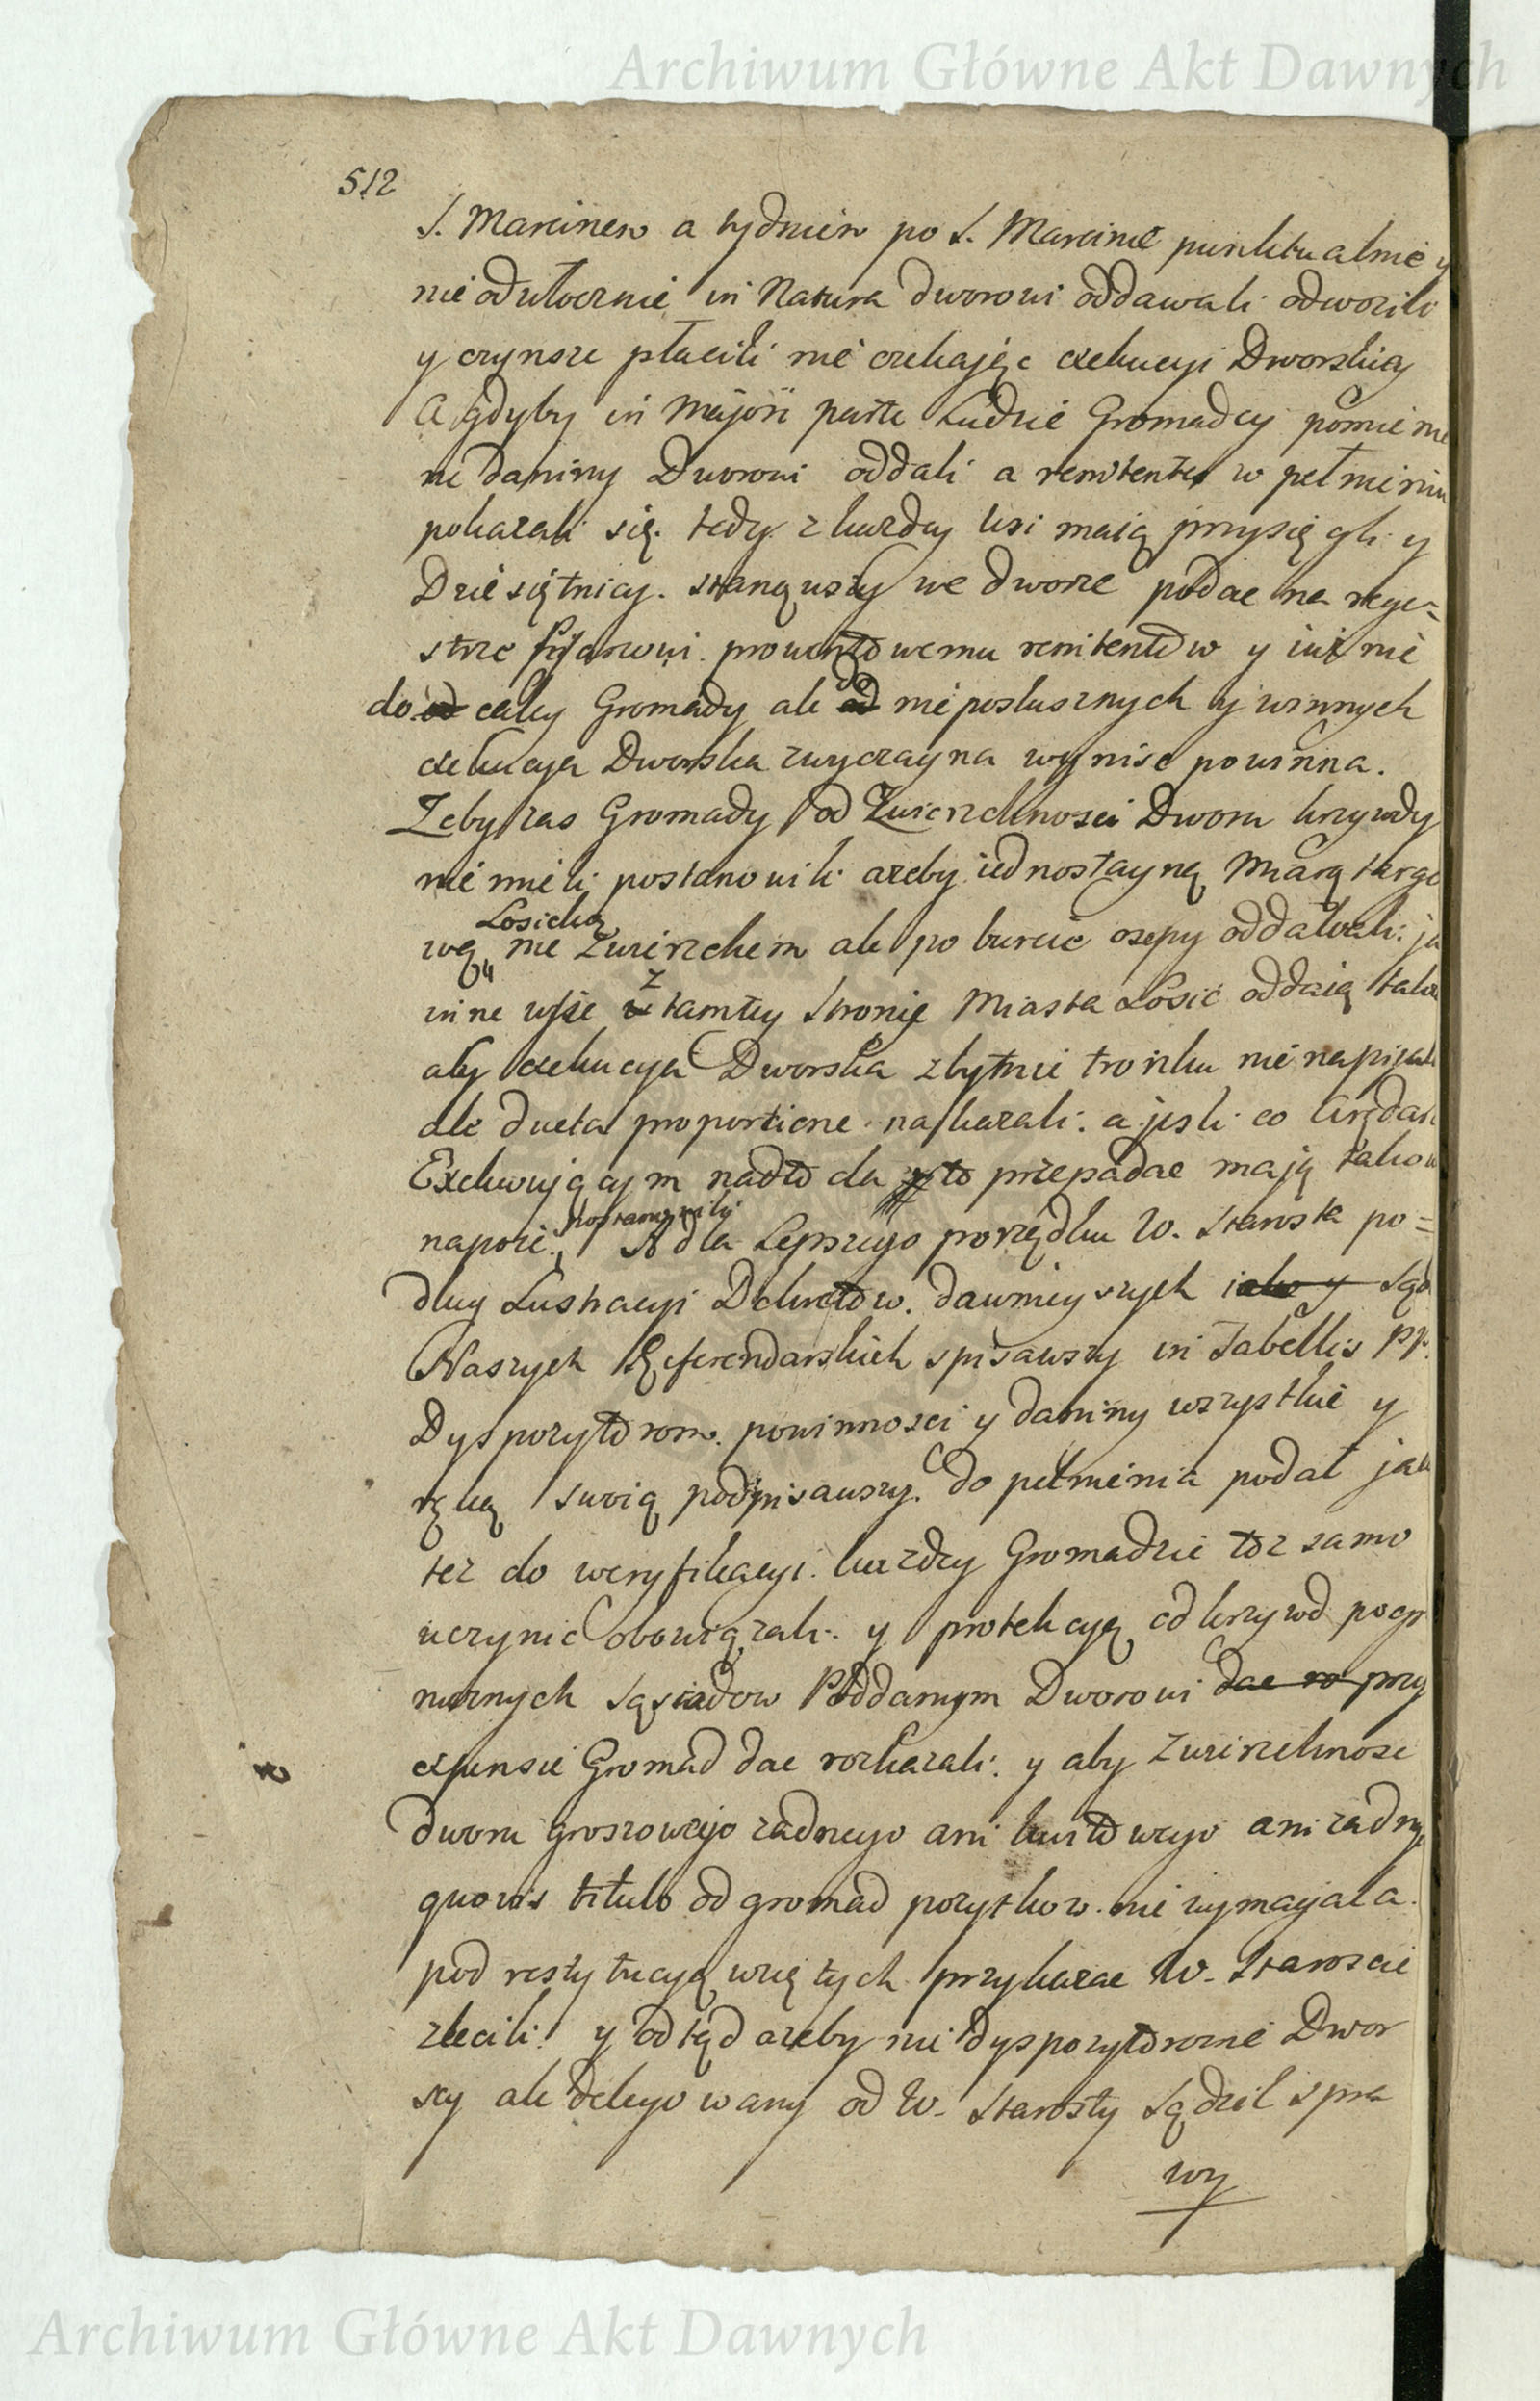 Archiwum Główne Akt Dawnych
512
S. Marcinem a tydniem po S. Marcinie punktualnie y
nieodwłocznie in Natura dworowi oddawali odwozili
y czynsze płacili nie czekając exekucyi Dworskiey
A gdyby in Majori parte Ludzie Gromadcy pomienio
ne daniny Dworowi oddali a renitentes w pełnieniu
pokazali się. tedy z kazdey wsi maią przysięgli y
Dziesiętnicy. stanąwszy we dworze podac na reye=
strze Pisarowi prowentowemu renitentow y iuż nie
do od całey Gromady ale do od nieposlusznych y winnych
exekucya Dworska zwyczayna wynisc powinna.
Zeby zas Gromady od Zwierzchnosci Dworu krzywdy
nie mieli postanowili azeby iednostayną Miarą targo
wą Łosicką nie Zwierzchem ale po burcie osepy oddawali: ja
inne wsie z w tamtey Stronie Miasta Łosic oddaią
aby exekucya Dworska zbytnie trónku nie
ale ducta proportione nakazali. a jesli co
Exekwuiącym nadto da to przepadac mają
napoie. postanowili A dla Lepszego porządku W. Starosta po=
dług Lustracyi Dekretow. dawnieyszych iako y Sądo
Naszych Referendarskich spisawszy in Tabellis PP.
Dyspozytorom. powinnosci y daniny wszystkie y
ręką swoią podpisawszy. do pełnienia podał jak
tez do weryfikacyi. kazdey Gromadzie toz samo
uczynic obowiązali. y protekcyą od krzywd pogr
nicznych sąsiadow Poddanym Dworowi dac ro przy
expensie Gromad dac rozkazali. y aby Zwierzchnosc
dworu groszowego zadnego ani ani zadny
quovis titulo od gromad pozytkow. nie wymagała.
pod restytucyą wziętych przykazac W. Staroscie
zlecili. y odtąd azeby nie dyspozytorowie Dwor
scy ale delegowany od W. Starosty sądził spra
wy
Archiwum Główne Akt Dawnych